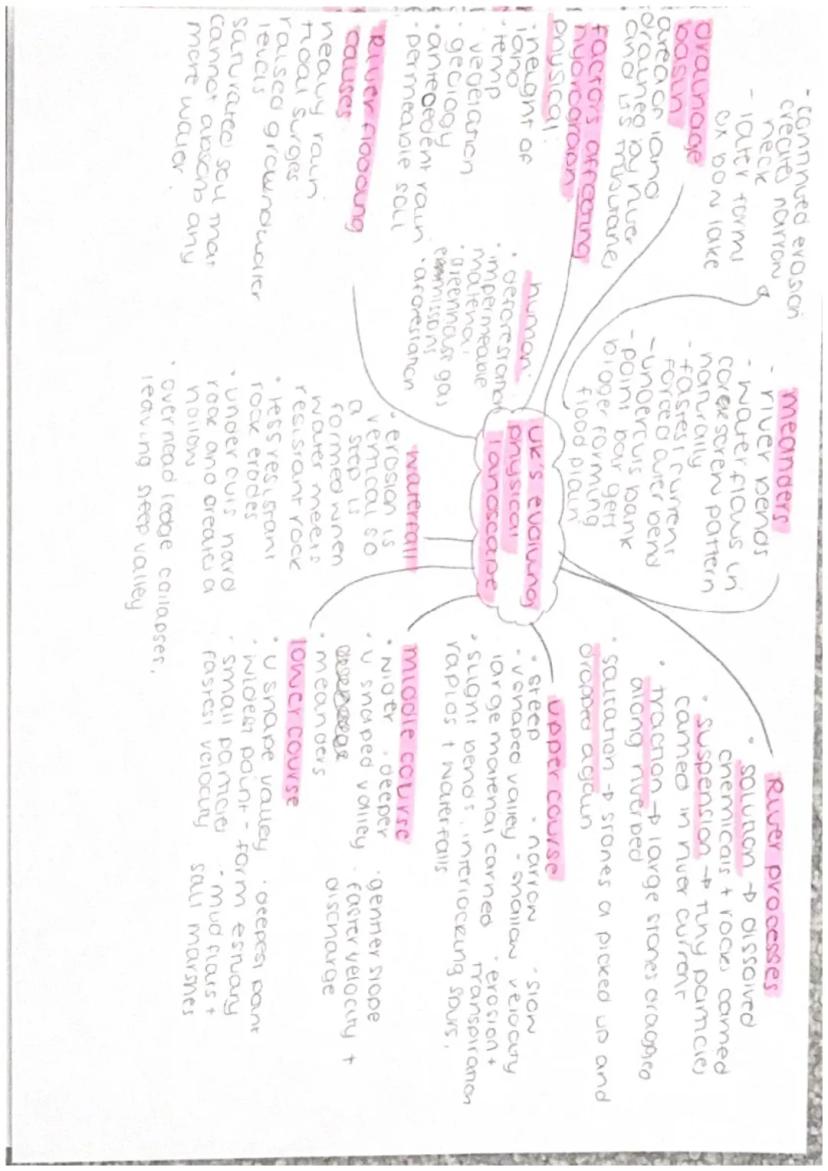 - continued erosion
creates narrow
neck
- later forms
ox bow lake
drainage
basin
area of land
drained by river
and its tributaries
factors affecting
hydrograph
physical:
· height of
land
· temp
· vegetation
· geology
· antecedent rain
· permeable soil
human:
· deforestation
· impermeable
material
· greenhouse gas
emmissions
· aforestation
River flooding
causes
heavy rain
tidal surges
raised groundwater
levels
saturated soil that
cannot absorb any
more water.
meanders
- river bends
- water flows in
corkscrew pattern
naturally
- fastest current
forced outer bend
- undercuts bank
- point bar gets
bigger forming
flood plain
UK's evolving
physical
landscape
waterfall
· erosion is
vertical so
a step is
formed when
water meets
resistant rock
· less resistant
rock erodes
· under cuts hard
rock and creates a
hollow
· overhead ledge collapses,
leaving steep valley
River processes
· solution → dissolved
chemicals + rocks carried
· suspension → tiny particles
carried in river current
· traction → large stones dragged
along riverbed
· saltation → stones a picked up and
dropped again
upper course
· steep · narrow · slow
· v shaped valley · shallow velocity
large material carried · erosion +
· slight bends, interlocking spurs, transpiration
rapids + waterfalls
middle course
· wider · deeper · gentler slope
· U shaped valley · faster velocity +
discharge
· meanders
lower course
· U shape valley · deepest part
· widest point - form estuary
· small particles · mud flats +
fastest velocity salt marshes